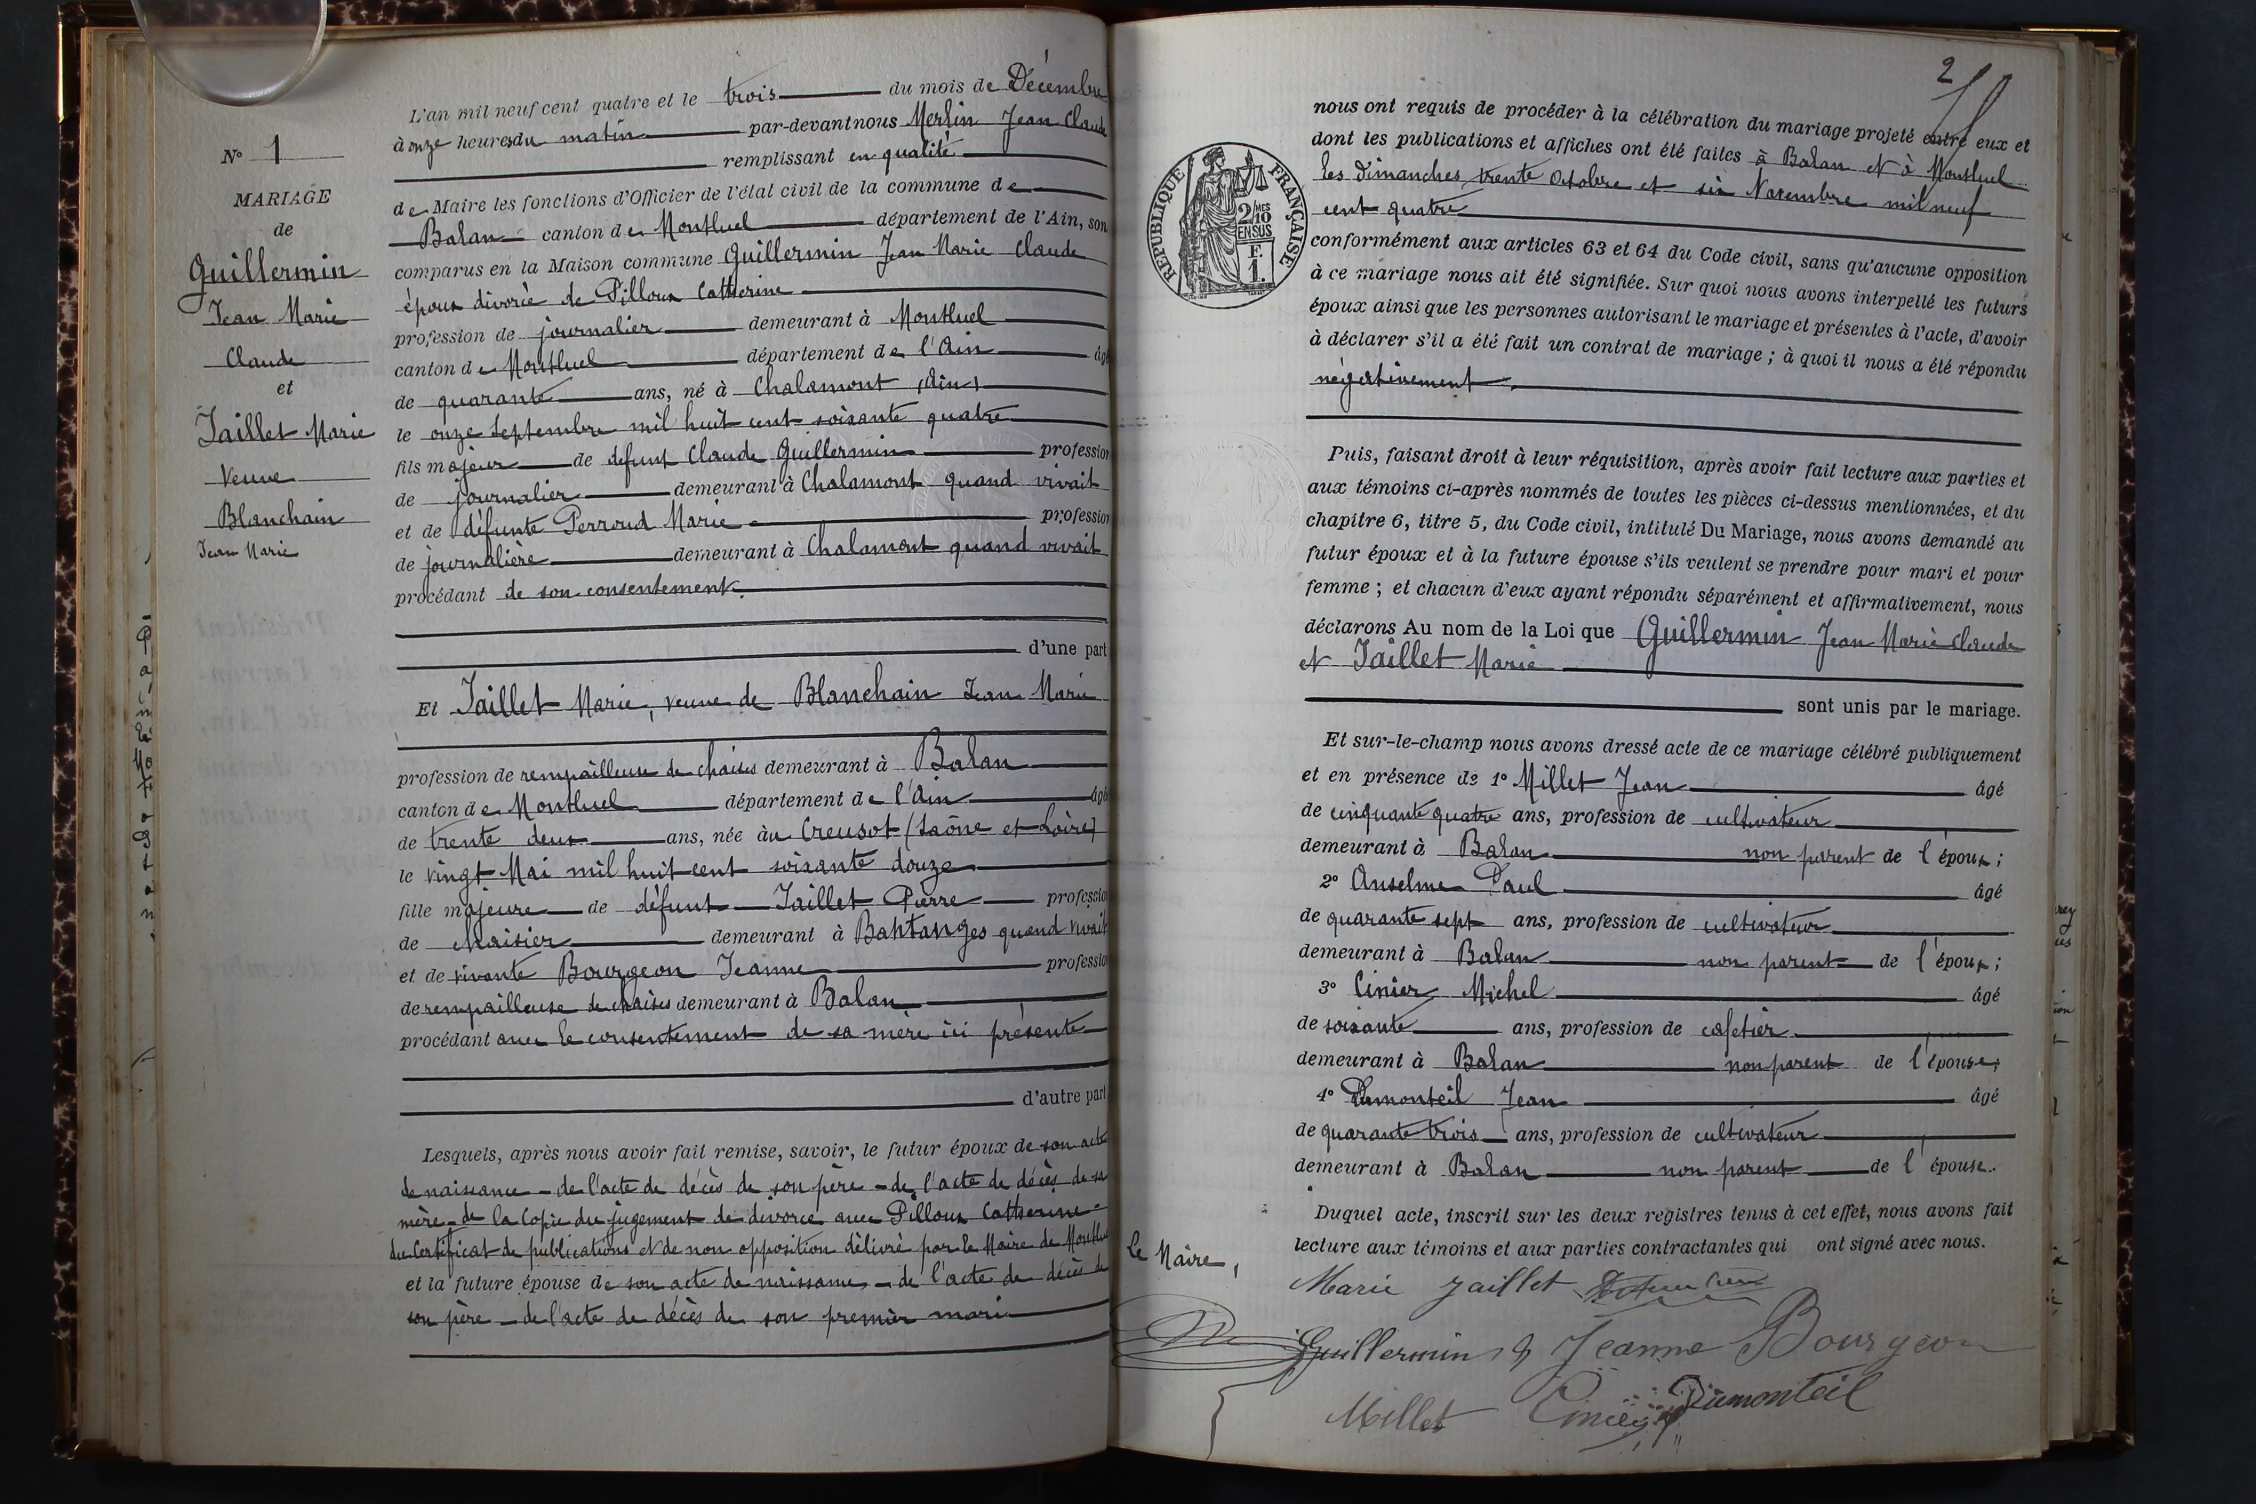 N° 1
MARIAGE
de
Guillermin
Jean Marie
Claude
et
Jaillet Marie
Veuve
Blanchain
Jean Marie
L'an mil neuf cent quatre et le trois du mois de Décembre
à onze heures du matin par-devant nous Merlin Jean Claude
remplissant en qualité
de Maire les fonctions d'Officier de l'état civil de la commune de
Balan canton de Montluel département de l'Ain, son
comparus en la Maison commune Guillermin Jean Marie Claude
époux divorcé de Pilloux Catherine
profession de journalier demeurant à Montluel
canton de Montluel département de l'Ain âgé
de quarante ans, né à Chalamont (Ain)
le onze Septembre mil huit cent soixante quatre
fils majeur de defunt Claude Guillermin profession
de journalier demeurant à Chalamont quand vivait
et de défunte Perroud Marie profession
de journalière demeurant à Chalamont quand vivait
procédant de son consentement.
d'une part
Et Jaillet Marie, veuve de Blanchain Jean Marie
profession de rempailleuse de chaises demeurant à Balan
canton de Montluel département de l'Ain âgé
de trente deux ans, née au Creusot (Saône et Loire)
le vingt Mai mil huit cent soixante douze
fille majeure de défunt Jaillet Pierre profession
de chaisier demeurant à Bantanges quand vivait
et de vivante Bourgeon Jeanne profession
de rempailleuse de chaises demeurant à Balan
procédant avec le consentement de sa mère ici présente
d'autre part
Lesquels, après nous avoir fait remise, savoir, le futur époux de son acte
de naissance - de l'acte de décès de son père - de l'acte de décès de sa
mère - de la Copie du jugement de divorce avec Pilloux Catherine -
du Certificat de publications et de non opposition délivré par le Maire de Montluel
et la future épouse de son acte de naissance - de l'acte de décès de
son père - de l'acte de décès de son premier mari
2
REPUBLIQUE FRANÇAISE
2/10 MES
EN SUS
F.
1.
nous ont requis de procéder à la célébration du mariage projeté entre eux et
dont les publications et affiches ont été faites à Balan et à Montluel
les dimanches trente Octobre et six Novembre mil neuf
cent quatre
conformément aux articles 63 et 64 du Code civil, sans qu'aucune opposition
à ce mariage nous ait été signifiée. Sur quoi nous avons interpellé les futurs
époux ainsi que les personnes autorisant le mariage et présentes à l'acte, d'avoir
à déclarer s'il a été fait un contrat de mariage ; à quoi il nous a été répondu
négativement.
Puis, faisant droit à leur réquisition, après avoir fait lecture aux parties et
aux témoins ci-après nommés de toutes les pièces ci-dessus mentionnées, et du
chapitre 6, titre 5, du Code civil, intitulé Du Mariage, nous avons demandé au
futur époux et à la future épouse s'ils veulent se prendre pour mari et pour
femme ; et chacun d'eux ayant répondu séparément et affirmativement, nous
déclarons Au nom de la Loi que Guillermin Jean Marie Claude
et Jaillet Marie
sont unis par le mariage.
Et sur-le-champ nous avons dressé acte de ce mariage célébré publiquement
et en présence de 1° Millet Jean âgé
de cinquante quatre ans, profession de cultivateur
demeurant à Balan non parent de l'époux ;
2° Anselme Paul âgé
de quarante sept ans, profession de cultivateur
demeurant à Balan non parent de l'époux ;
3° Cinier Michel âgé
de soixante ans, profession de cafetier
demeurant à Balan non parent de l'épouse ;
4° Dumonteil Jean âgé
de quarante trois ans, profession de cultivateur
demeurant à Balan non parent de l'épouse.
Duquel acte, inscrit sur les deux registres tenus à cet effet, nous avons fait
lecture aux témoins et aux parties contractantes qui ont signé avec nous.
Le Maire,
Marie Jaillet
Guillermin Jeanne Bourgeon
Millet Cinier Dumonteil